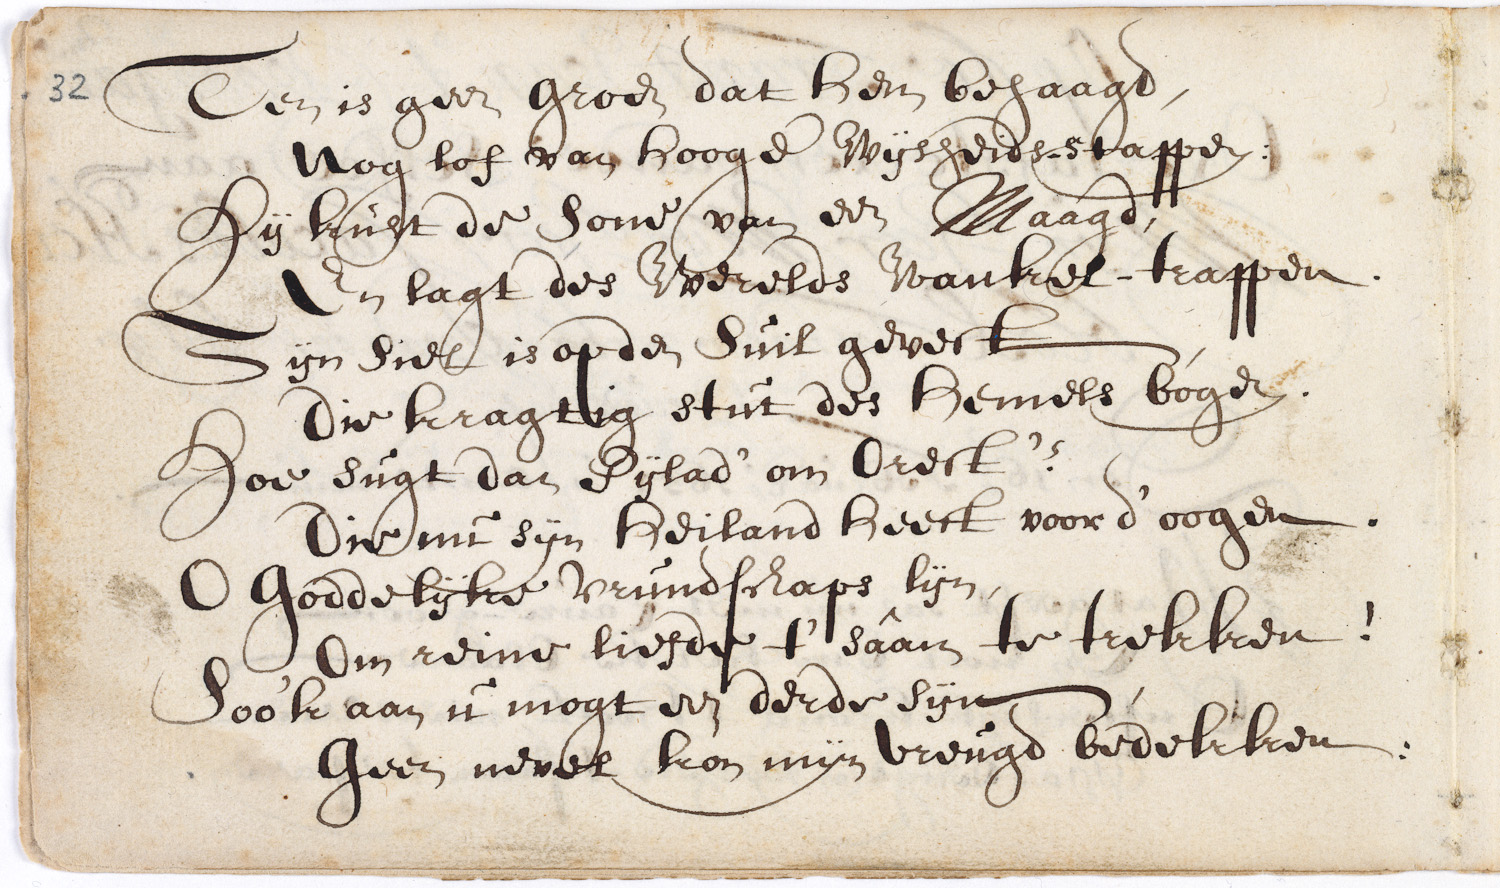 32
Ten is geen groen dat hem behaagd,
Nog lof van hooge Wijsheids-stappen:
Hij kust de Sone van een Maagd,
En lagt des Werelds Wankel-trappen.
Sijn Siel is op den Suil gevest,
Die kragtig stut des Hemels bogen.
Hoe sugt dan Pylad' om Orest'?
Die nu sijn Heiland heest voor d' oogen.
O Goddelijke Vrundschaps lijn,
Om reine liefde t' sâam te trekken!
Soo'k aan u mogt een derde sijn
Geen nevel kon mijn vreugd bedekken: